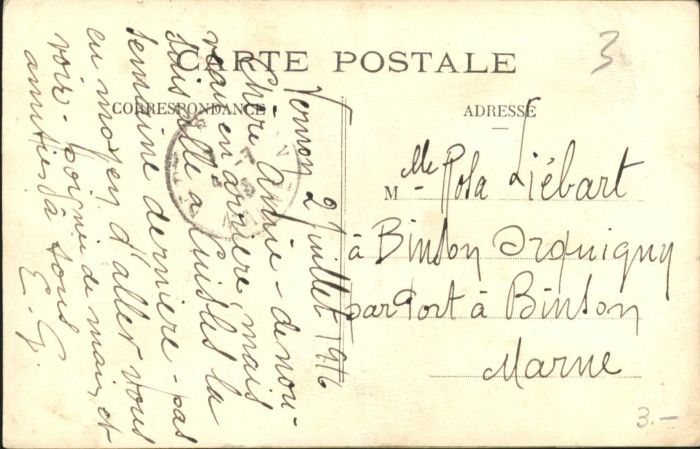 CARTE POSTALE
CORRESPONDANCE
ADRESSE
3
Vernon 2 Juillet 1916
Chère Amie - de nou-
veau en arrière, mais
suis allé a Cuisles la
semaine dernière - pas
eu moyen d'aller vous
voir - poignée de main et
amitiés à tous
E. G.
M lle Rosa Liébart
à Binson Orquigny
par Port à Binson
Marne
3.-